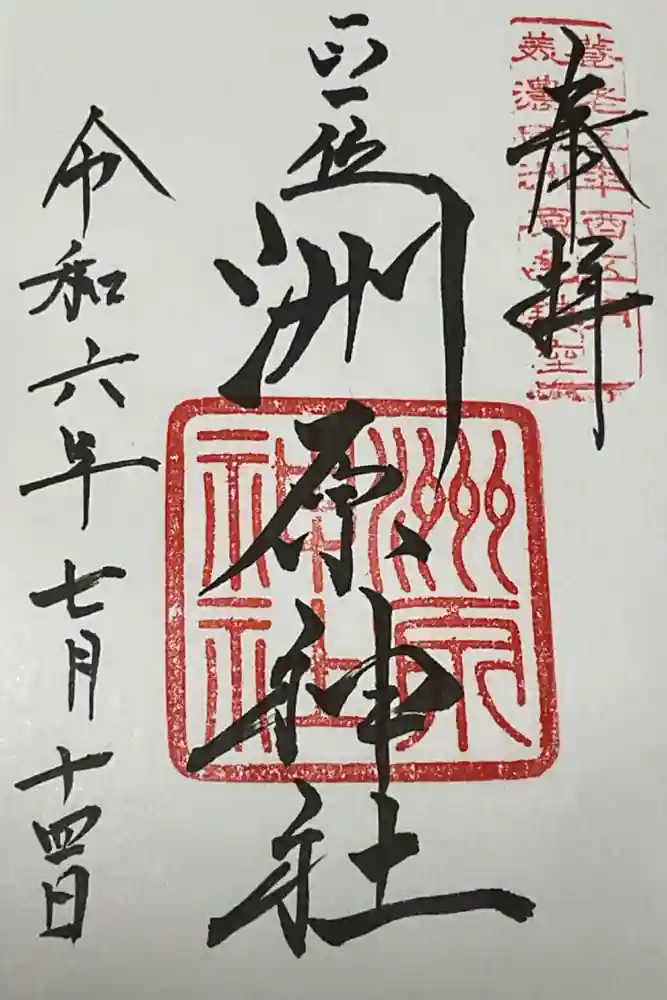 奉拝
正一位
洲原神社
令和六年七月十四日
洲原
神社